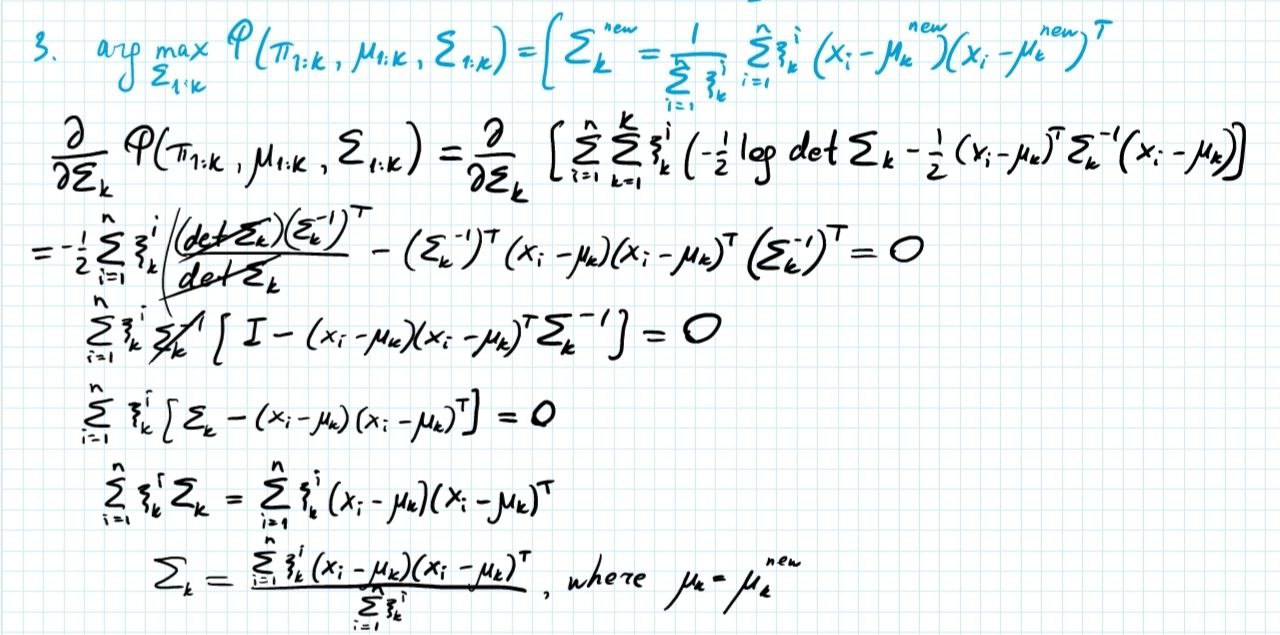 3. arg max_{Σ_{1:K}} φ(π_{1:K}, μ_{1:K}, Σ_{1:K}) = [Σ_k^{new} = 1/(∑_{i=1}^{n} ξ_k^i) ∑_{i=1}^{n} ξ_k^i (x_i - μ_k^{new})(x_i - μ_k^{new})^T
∂/∂Σ_k φ(π_{1:K}, μ_{1:K}, Σ_{1:K}) = ∂/∂Σ_k [∑_{i=1}^{n} ∑_{k=1}^{K} ξ_k^i (-1/2 log det Σ_k - 1/2 (x_i - μ_k)^T Σ_k^{-1} (x_i - μ_k)]
= -1/2 ∑_{i=1}^{n} ξ_k^i ( (det Σ_k)(Σ_k^{-1})^T / det Σ_k - (Σ_k^{-1})^T (x_i - μ_k)(x_i - μ_k)^T (Σ_k^{-1})^T = 0
∑_{i=1}^{n} ξ_k^i Σ_k^{-1} [I - (x_i - μ_k)(x_i - μ_k)^T Σ_k^{-1}] = 0
∑_{i=1}^{n} ξ_k^i [Σ_k - (x_i - μ_k)(x_i - μ_k)^T] = 0
∑_{i=1}^{n} ξ_k^i Σ_k = ∑_{i=1}^{n} ξ_k^i (x_i - μ_k)(x_i - μ_k)^T
Σ_k = ∑_{i=1}^{n} ξ_k^i (x_i - μ_k)(x_i - μ_k)^T / ∑_{i=1}^{n} ξ_k^i , where μ_k = μ_k^{new}